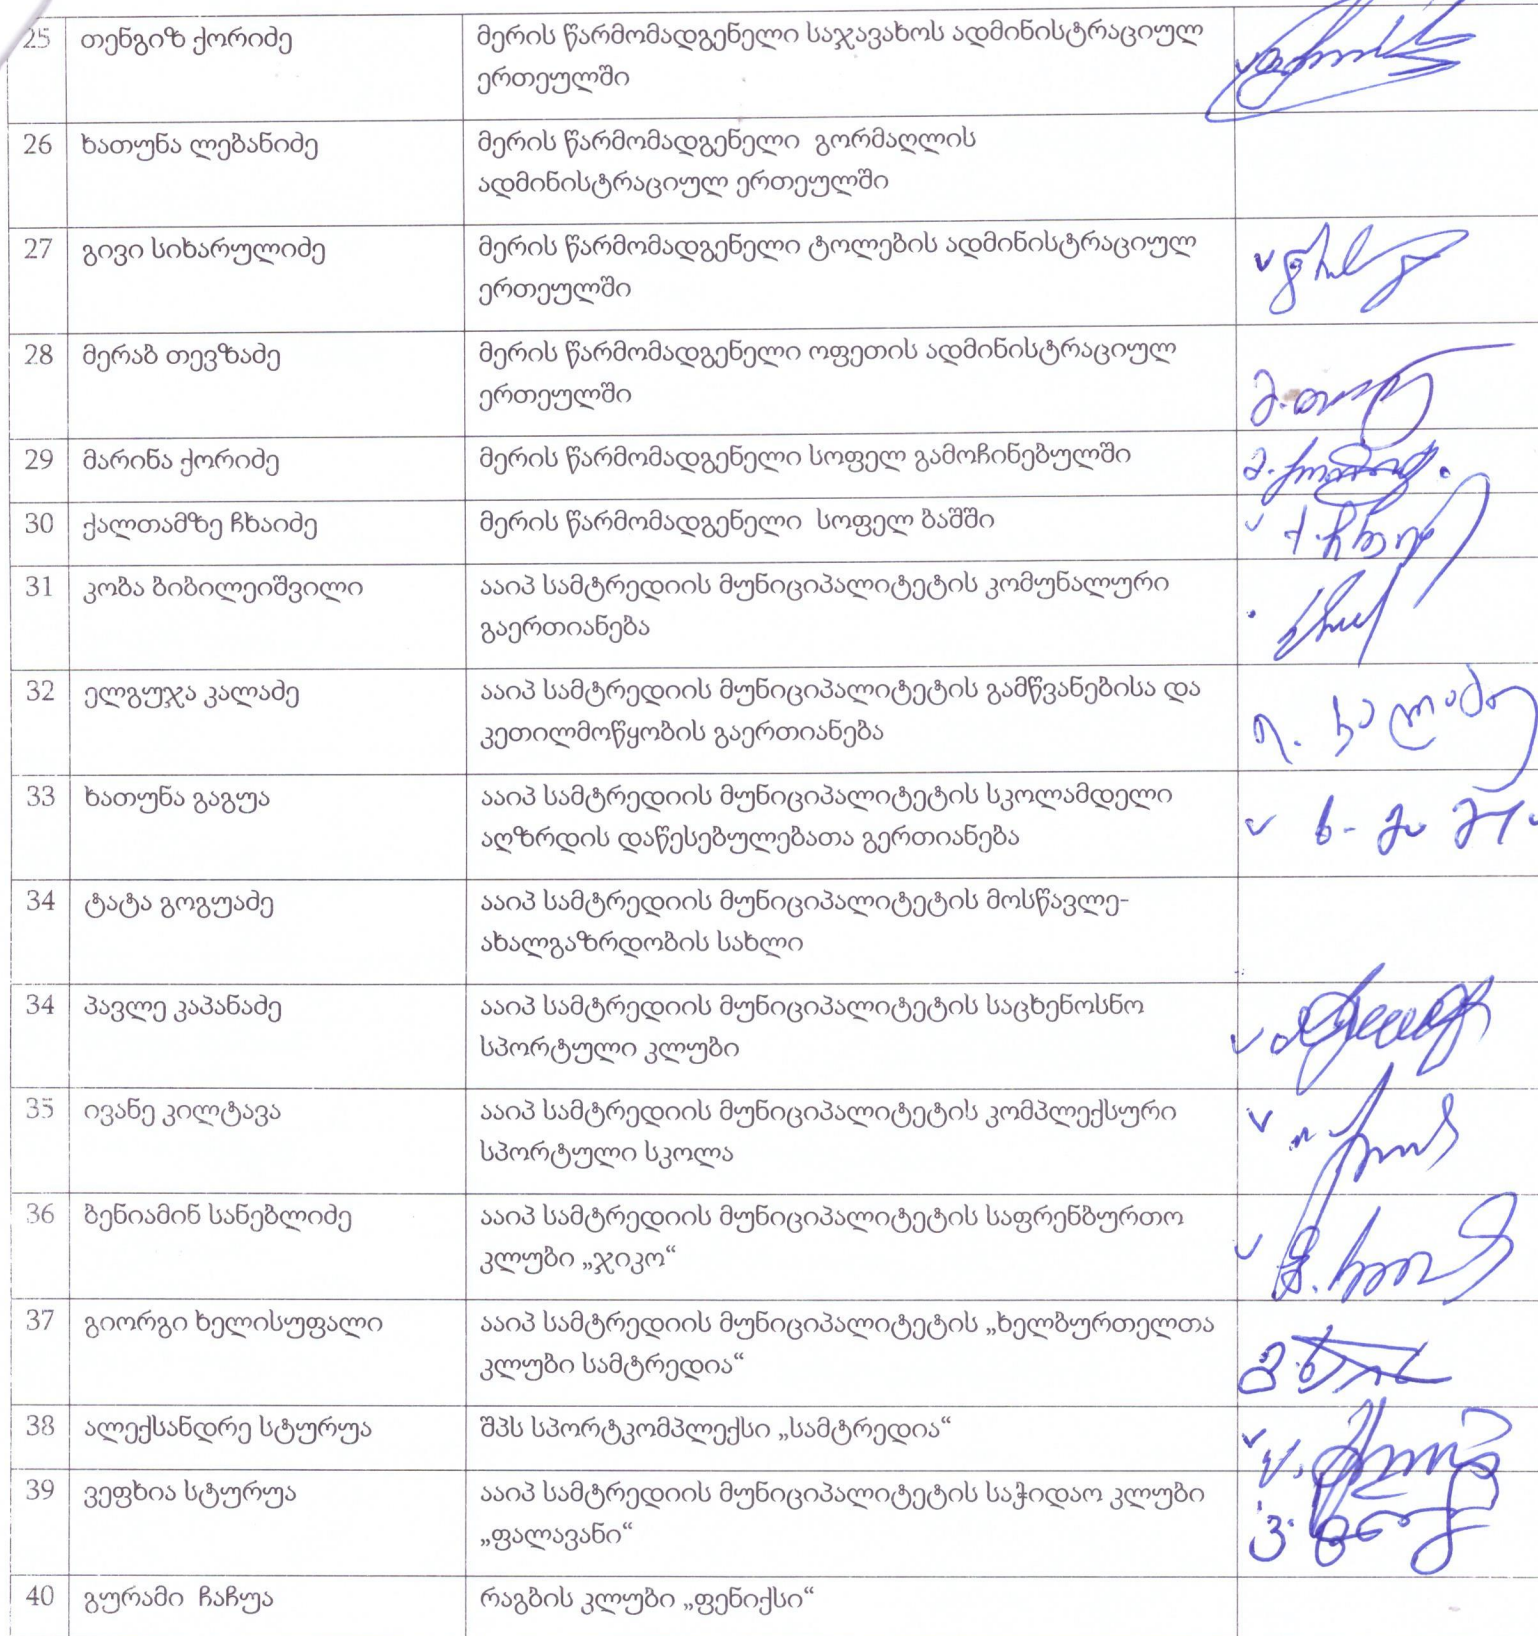 25 თენგიზ ქორიძე მერის წარმომადგენელი საჯავახოს ადმინისტრაციულ
ერთეულში
26 ხათუნა ლებანიძე მერის წარმომადგენელი გორმაღლის
ადმინისტრაციულ ერთეულში
27 გივი სიხარულიძე მერის წარმომადგენელი ტოლების ადმინისტრაციულ
ერთეულში
28 მერაბ თევზაძე მერის წარმომადგენელი ოფეთის ადმინისტრაციულ
ერთეულში
29 მარინა ქორიძე მერის წარმომადგენელი სოფელ გამოჩინებულში
30 ქალთამზე ჩხაიძე მერის წარმომადგენელი სოფელ ბაშში
31 კობა ბიბილეიშვილი ააიპ სამტრედიის მუნიციპალიტეტის კომუნალური
გაერთიანება
32 ელგუჯა კალაძე ააიპ სამტრედიის მუნიციპალიტეტის გამწვანებისა და
კეთილმოწყობის გაერთიანება
33 ხათუნა გაგუა ააიპ სამტრედიის მუნიციპალიტეტის სკოლამდელი
აღზრდის დაწესებულებათა გერთიანება
34 ტატა გოგუაძე ააიპ სამტრედიის მუნიციპალიტეტის მოსწავლე-
ახალგაზრდობის სახლი
34 პავლე კაპანაძე ააიპ სამტრედიის მუნიციპალიტეტის საცხენოსნო
სპორტული კლუბი
35 ივანე კილტავა ააიპ სამტრედიის მუნიციპალიტეტის კომპლექსური
სპორტული სკოლა
36 ბენიამინ სანებლიძე ააიპ სამტრედიის მუნიციპალიტეტის საფრენბურთო
კლუბი „ჯიკო“
37 გიორგი ხელისუფალი ააიპ სამტრედიის მუნიციპალიტეტის „ხელბურთელთა
კლუბი სამტრედია“
38 ალექსანდრე სტურუა შპს სპორტკომპლექსი „სამტრედია“
39 ვეფხია სტურუა ააიპ სამტრედიის მუნიციპალიტეტის საჭიდაო კლუბი
„ფალავანი“
40 გურამი ჩაჩუა რაგბის კლუბი „ფენიქსი“